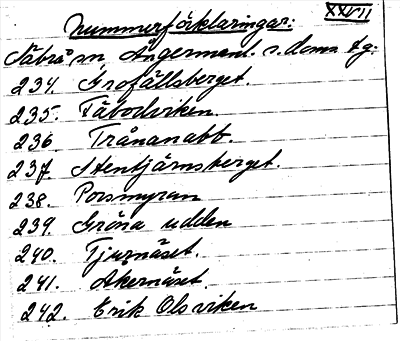 XXVII
nummerförklaringar:
Säbrå sn, Ångermanl. s. doms tg:
234. Grofällsberget.
235. Fäbodviken.
236. Trånanabb.
237. Stentjärnsberget.
238. Porsmyran
239. Gröna udden
240. Tjurnäset.
241. Åkernäset.
242. Erik Olsviken